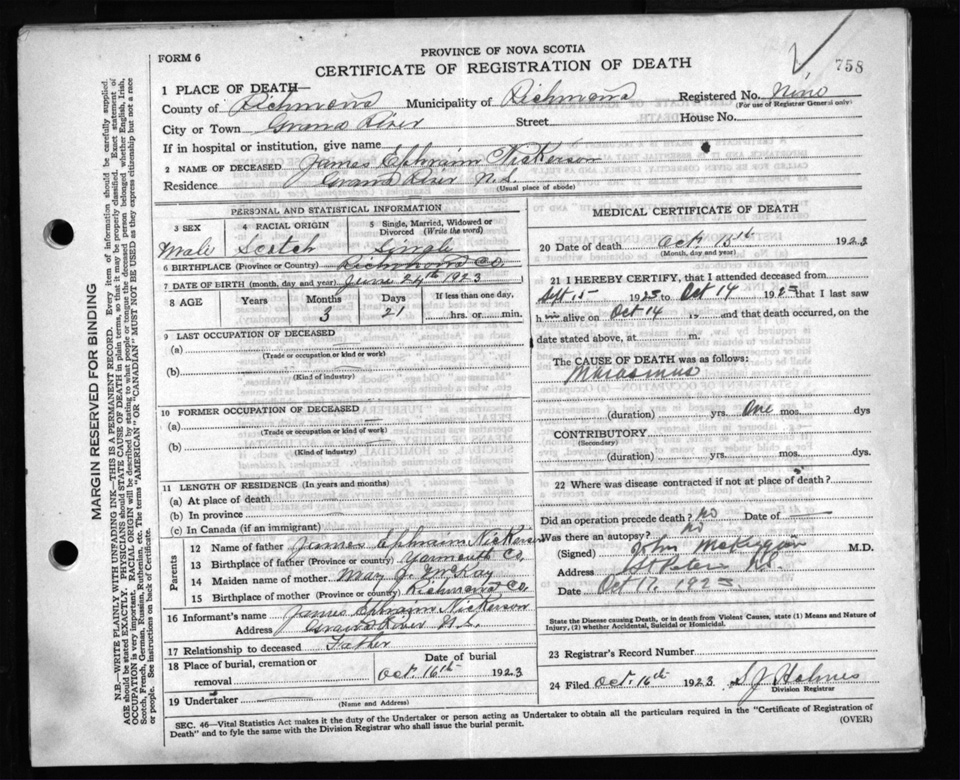 758
PROVINCE OF NOVA SCOTIA
FORM 6
CERTIFICATE OF REGISTRATION OF DEATH
1 PLACE OF DEATH—
County of Richmond Municipality of Richmond Registered No. Nine
(For use of Registrar General only)
City or Town Grand River Street House No.
If in hospital or institution, give name
2 NAME OF DECEASED James Ephraim Nickerson
Residence Grand River N.S.
(Usual place of abode)
PERSONAL AND STATISTICAL INFORMATION
3 SEX 4 RACIAL ORIGIN 5 Single, Married, Widowed or Divorced (Write the word)
Male Scotch Single
6 BIRTHPLACE (Province or Country) Richmond Co.
7 DATE OF BIRTH (month, day and year) June 24th 1923
8 AGE Years Months Days If less than one day,
3 21 hrs. or min.
9 LAST OCCUPATION OF DECEASED
(a)
(Trade or occupation or kind of work)
(b)
(Kind of industry)
10 FORMER OCCUPATION OF DECEASED
(a)
(Trade or occupation or kind of work)
(b)
(Kind of industry)
11 LENGTH OF RESIDENCE (In years and months)
(a) At place of death
(b) In province
(c) In Canada (if an immigrant)
Parents
12 Name of father James Ephraim Nickerson
13 Birthplace of father (Province or country) Yarmouth Co.
14 Maiden name of mother Mary J. McKay
15 Birthplace of mother (Province or country) Richmond Co.
16 Informant's name James Ephraim Nickerson
Address Grand River N.S.
17 Relationship to deceased Father
18 Place of burial, cremation or removal Date of burial
Oct. 16th 1923
19 Undertaker
(Name and Address)
MEDICAL CERTIFICATE OF DEATH
20 Date of death Oct 15th 1923
(Month, day and year)
21 I HEREBY CERTIFY, that I attended deceased from
Sept 15 1923 to Oct 14 1923 that I last saw
h im alive on Oct 14 19 and that death occurred, on the
date stated above, at m.
The CAUSE OF DEATH was as follows:
Marasmus
(duration) yrs. One mos. dys
CONTRIBUTORY
(Secondary)
(duration) yrs. mos. dys.
22 Where was disease contracted if not at place of death?
Did an operation precede death? no Date of
Was there an autopsy? no
(Signed) John M.D.
Address St Peters N.S.
Date Oct 17, 1923
State the Disease causing Death, or in death from Violent Causes, state (1) Means and Nature of Injury, (2) whether Accidental, Suicidal or Homicidal.
23 Registrar's Record Number
24 Filed Oct. 16th 1923 S J Holmes
Division Registrar
SEC. 46—Vital Statistics Act makes it the duty of the Undertaker or person acting as Undertaker to obtain all the particulars required in the "Certificate of Registration of
Death" and to fyle the same with the Division Registrar who shall issue the burial permit. (OVER)
MARGIN RESERVED FOR BINDING
N.B.—WRITE PLAINLY WITH UNFADING INK—THIS IS A PERMANENT RECORD. Every item of information should be carefully supplied.
AGE should be stated EXACTLY. PHYSICIANS should STATE CAUSE OF DEATH in plain terms, so that it may be properly classified. Exact statement of
OCCUPATION is very important. RACIAL ORIGIN will be described by stating to what people or tongue the deceased person belonged whether English, Irish,
Scotch, French, German, Russian, Ruthenian, etc. The terms "AMERICAN" or "CANADIAN" MUST NOT BE USED as they express citizenship but not a race
or people. See instructions on back of Certificate.